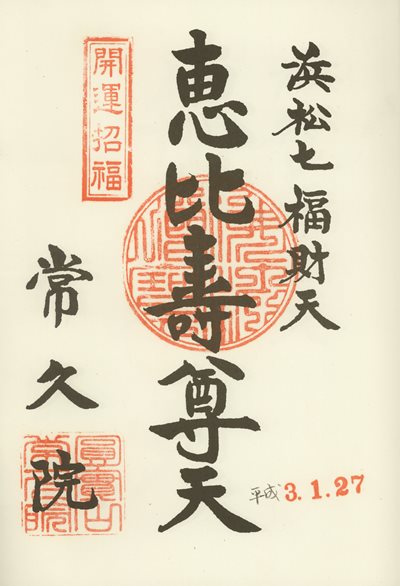 浜松七福財天
恵比寿尊天
開運招福
常久院
平成3.1.27